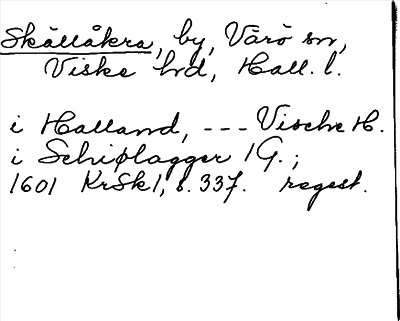 Skällåkra, by, Värö sn,
Viske hd, Hall. l.
i Halland, --- Vische H.
i Schiølagger 1 G.;
1601 KrSk1, s. 337. regest.